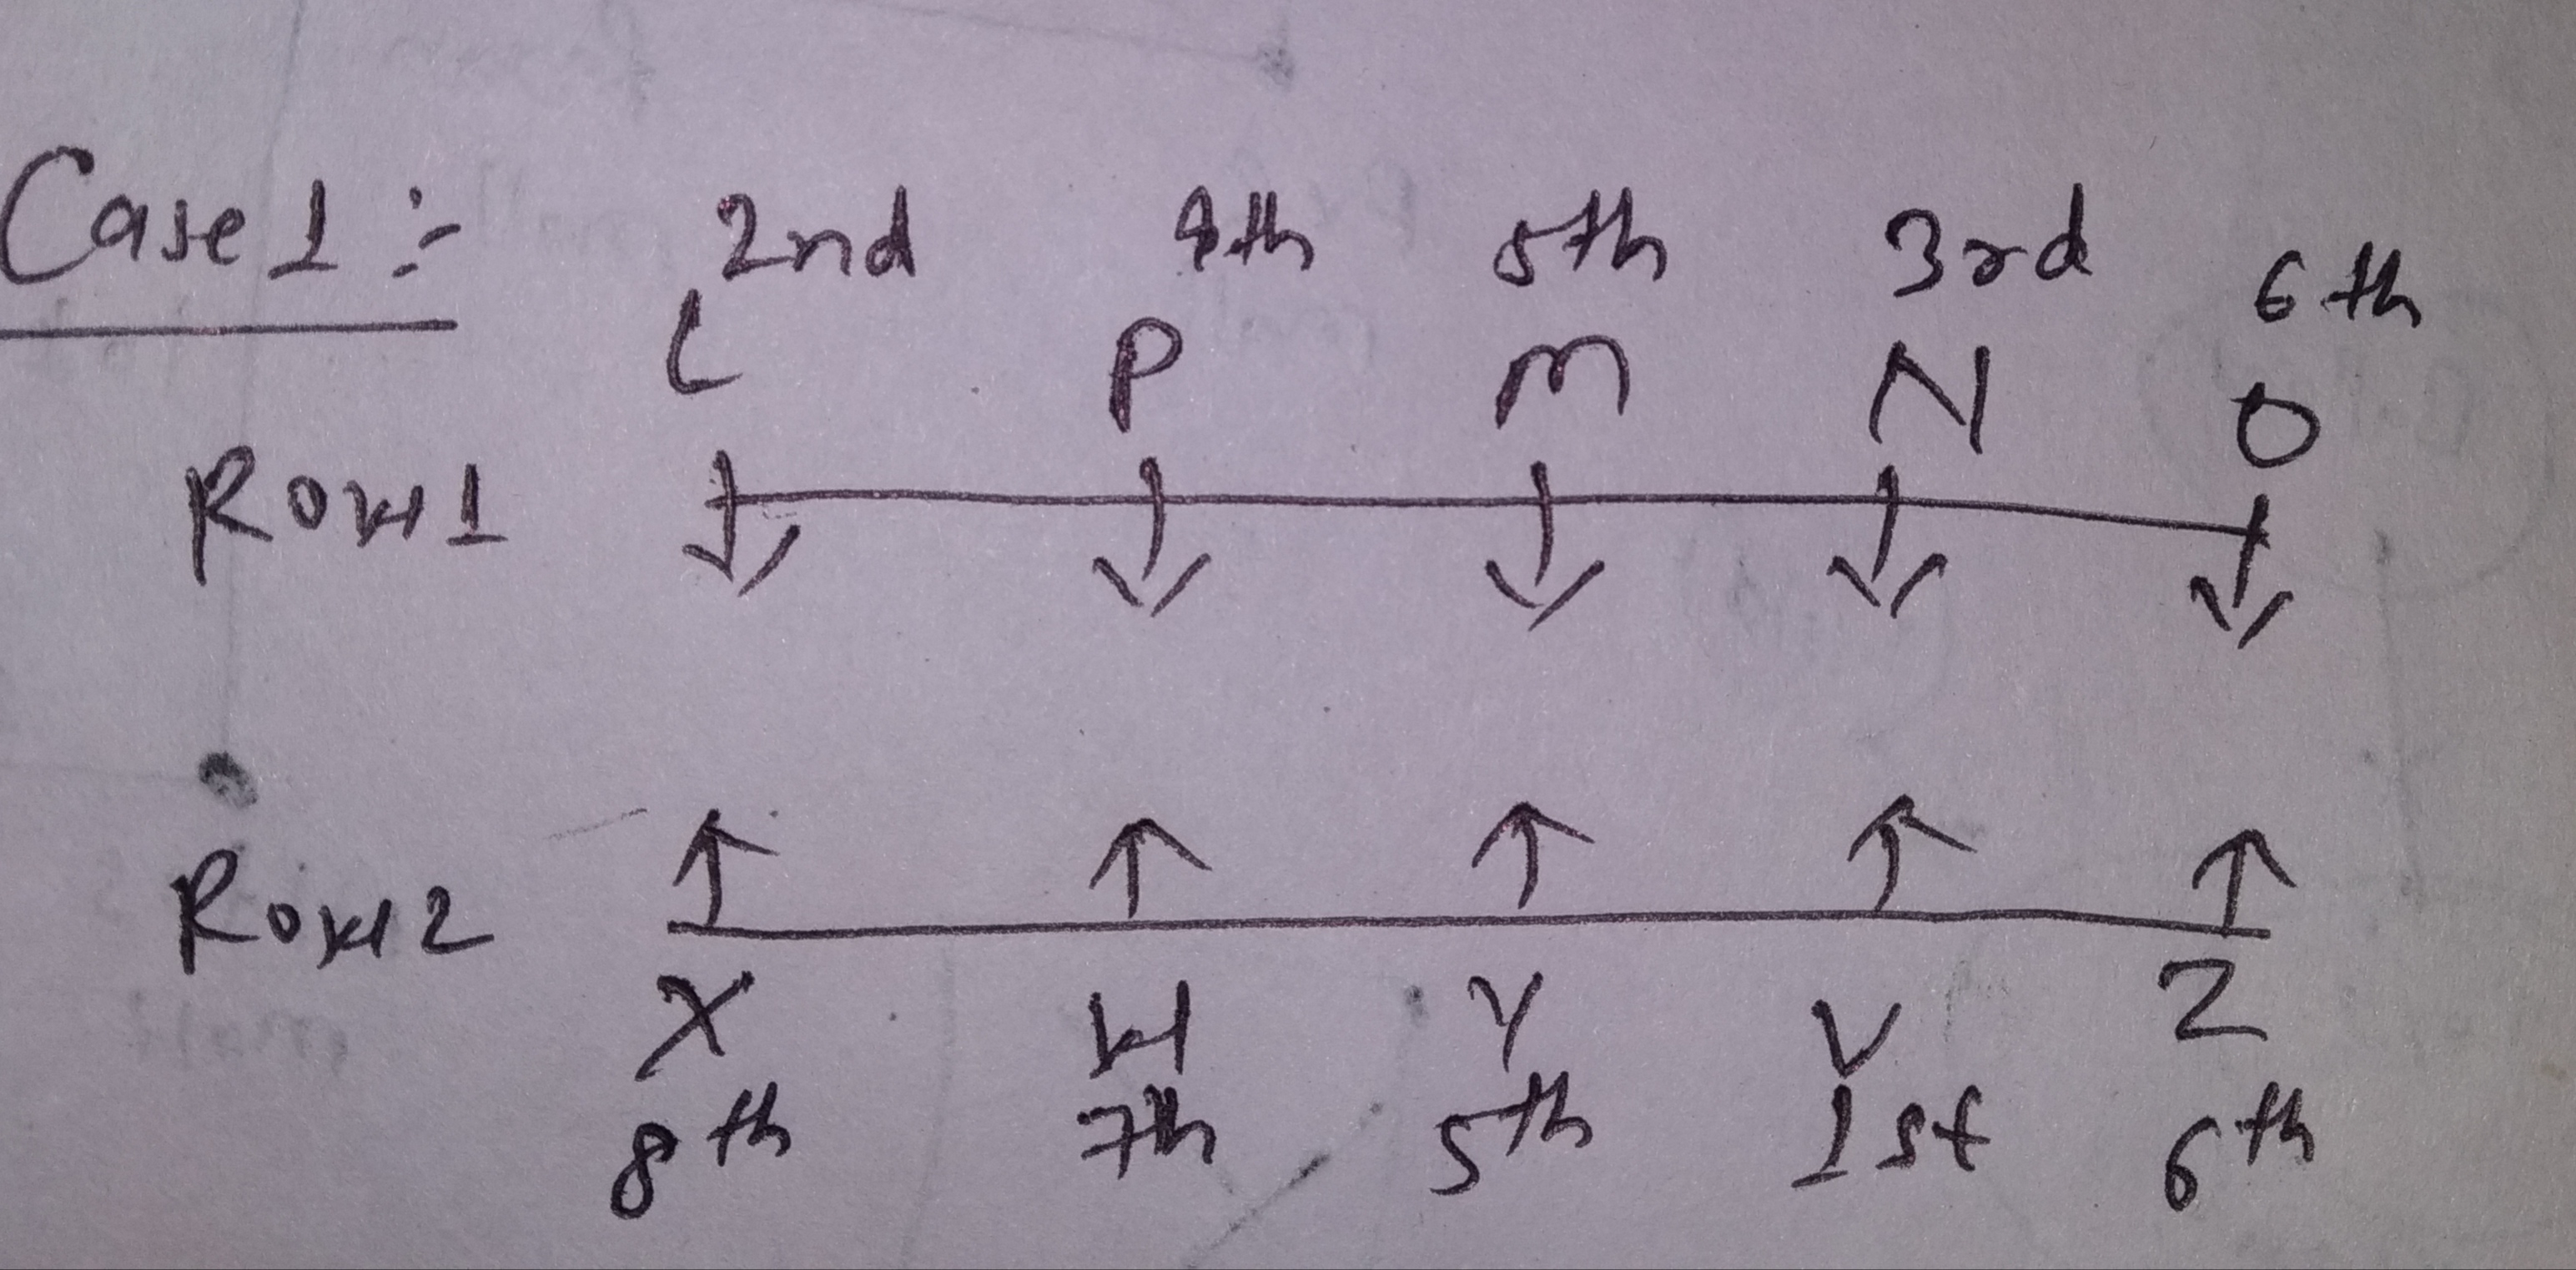 Case 1 :-
2nd 5th 3rd 6th
L P M N O
Row 1
Row 2
X W Y V Z
8th 7th 5th 1st 6th